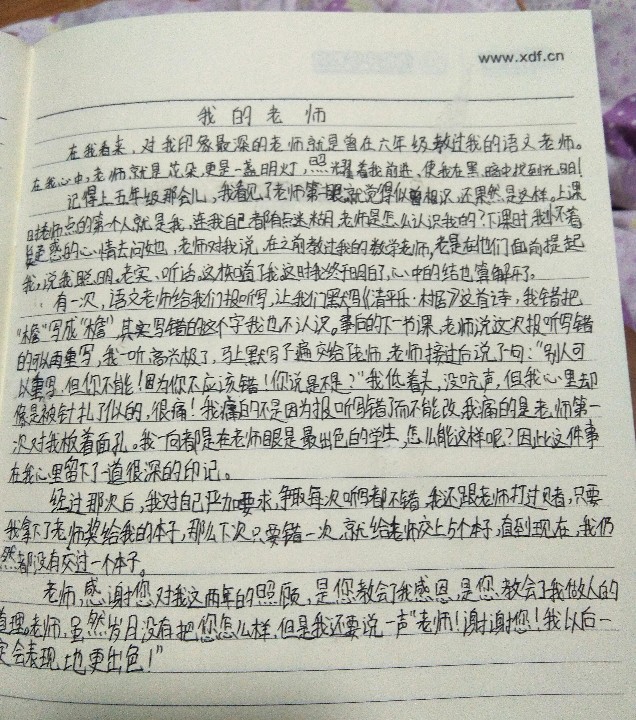 www.xdf.cn
我的老师
在我看来，对我印象最深的老师就是曾在六年级教过我的语文老师。
在我心中，老师就是花朵，更是一盏明灯，照耀着我前进，使我在黑暗中找到光明！
记得上五年级那会儿，我看见了老师第一眼就觉得似曾相识，还果然是这样。上课
时老师点的第一个人就是我，连我自己都有点迷糊老师是怎么认识我的？下课时，我怀着
疑惑的心情去问她，老师对我说，在之前教过我的数学老师，老是在他们面前提起
我，说我聪明、老实、听话，这快 了我这时我终于明白了，心中的结也算解开了。
有一次，语文老师给我们报听写，让我们默写《清平乐·村居》这首诗，我错把
“檐”写成“檐”，其实写错的这个字我也不认识。事后的下一节课，老师说这次报听写错
的可以再重写，我一听高兴极了，马上默写了遍交给了老师，老师接过后说了句：“别人可
以重写，但你不能！因为你不应该错！你说是不是？”我低着头，没吭声，但我心里却
像是被针扎了似的，很痛！我痛的不是因为报听写错了而不能改，我痛的是老师第一
次对我板着面孔。我一向都是在老师眼里是最出色的学生，怎么能这样呢？因此这件事
在我心里留下了一道很深的印记。
经过那次后，我对自己严加要求，争取每次听写都不错，我还跟老师打过赌，只要
我拿下了老师奖给我的本子，那么下次只要错一次，就给老师交上5个本子，直到现在，我仍
然都没有交过一个本子。
老师，感谢您对我这两年的照顾，是您教会了我感恩，是您教会了我做人的
道理。老师，虽然岁月没有把您怎么样，但是我还要说一声“老师！谢谢您！我以后一
定会表现地更出色！”